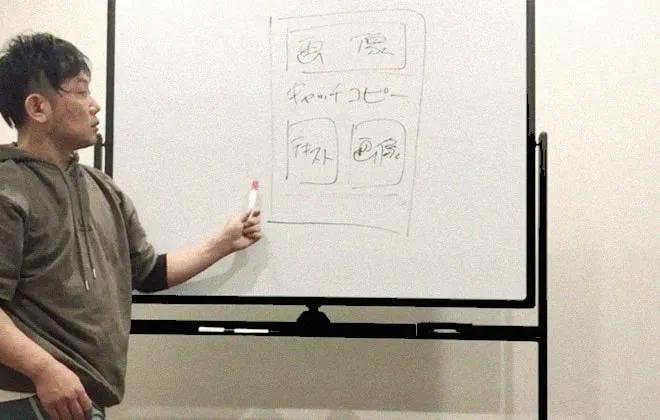 画像
キャッチコピー
テキスト 画像